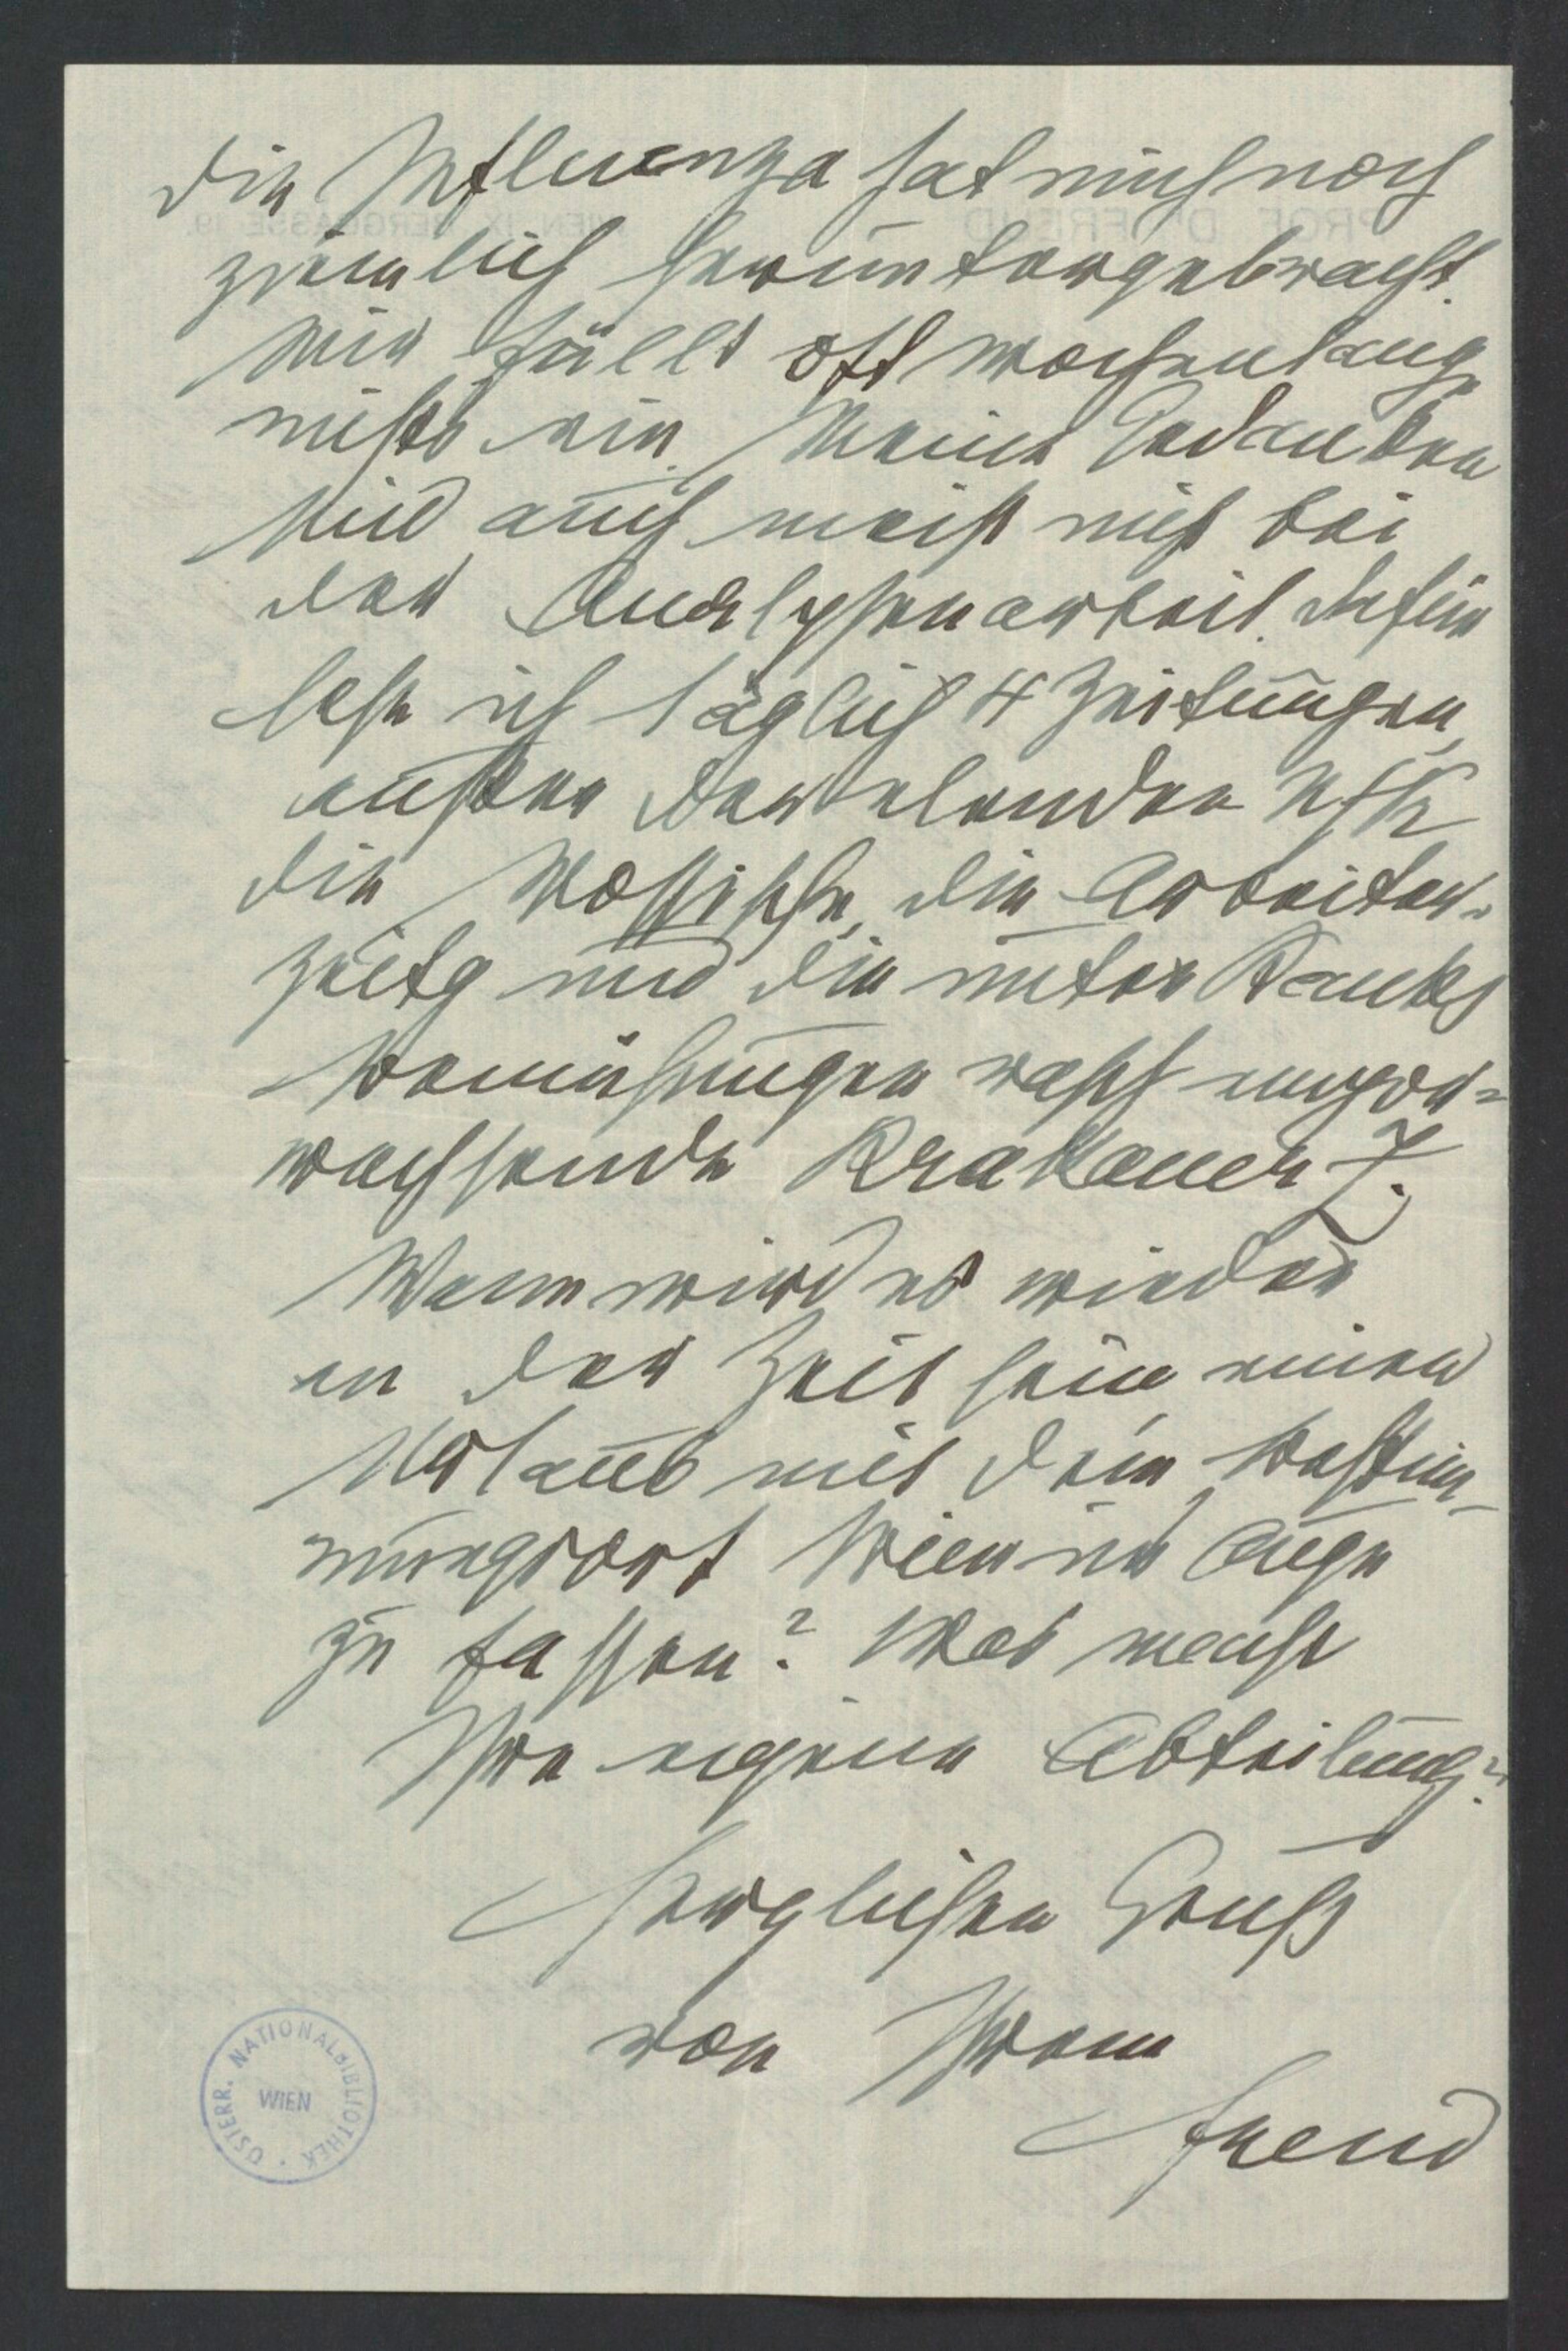 die Influenza hat mich noch
ziemlich heruntergebracht.
Mir fällt oft wochenlang
nichts ein. Meine Gedanken
sind auch meist nicht bei
der Analysenarbeit. Dafür
lese ich täglich 4 Zeitungen,
außer der elenden NfPr
die Vossische, die Arbeiter-
zeitg und die unter Ranks
Bemühungen rasch empor=
wachsende Krakauer Z.
Wann wird es wieder
an der Zeit sein, einen
Urlaub mit dem Bestim-
mungsort Wien ins Auge
zu fassen? Was macht
Ihre eigene Abteilung?
Herzlichen Gruß
von Ihrem
Freud
ÖSTERR. NATIONALBIBLIOTHEK
WIEN
PROF. Dr FREUD
WIEN IX. BERGGASSE 19.